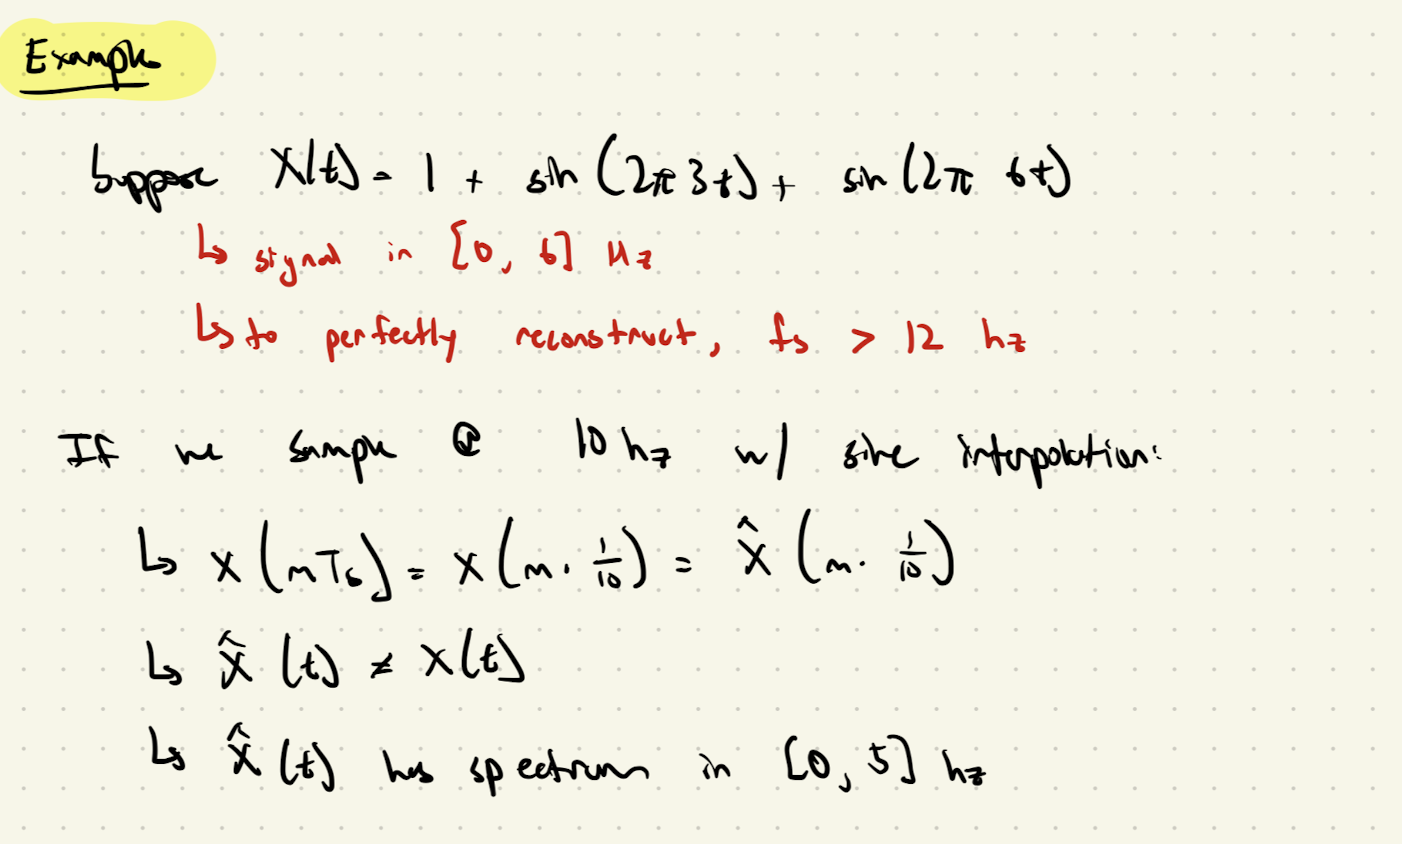 Example
Suppose X(t) = 1 + sin(2π3t) + sin(2π 6t)
↳ signal in [0, 6] Hz
↳ to perfectly reconstruct, fs > 12 hz
If we sample @ 10 hz w/ sinc interpolation:
↳ x(mTs) = x(m · 1/10) = x̂(m · 1/10)
↳ x̂(t) ≠ x(t)
↳ x̂(t) has spectrum in [0, 5] hz